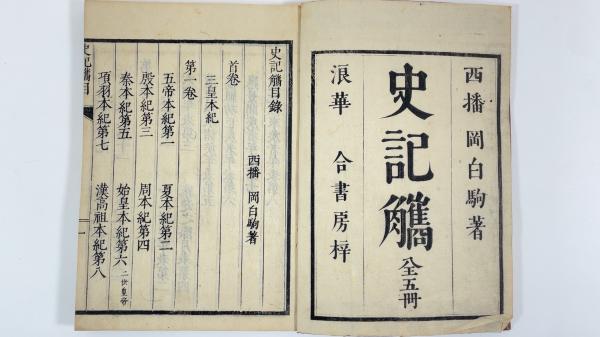 西播 岡白駒著
史記觿 全五冊
浪華 合書房梓
史記觿目錄
西播 岡白駒著
首卷
三皇本紀
第一卷
五帝本紀第一 夏本紀第二
殷本紀第三 周本紀第四
秦本紀第五 始皇本紀第六 二世皇帝
項羽本紀第七 漢高祖本紀第八
史記觿目
一